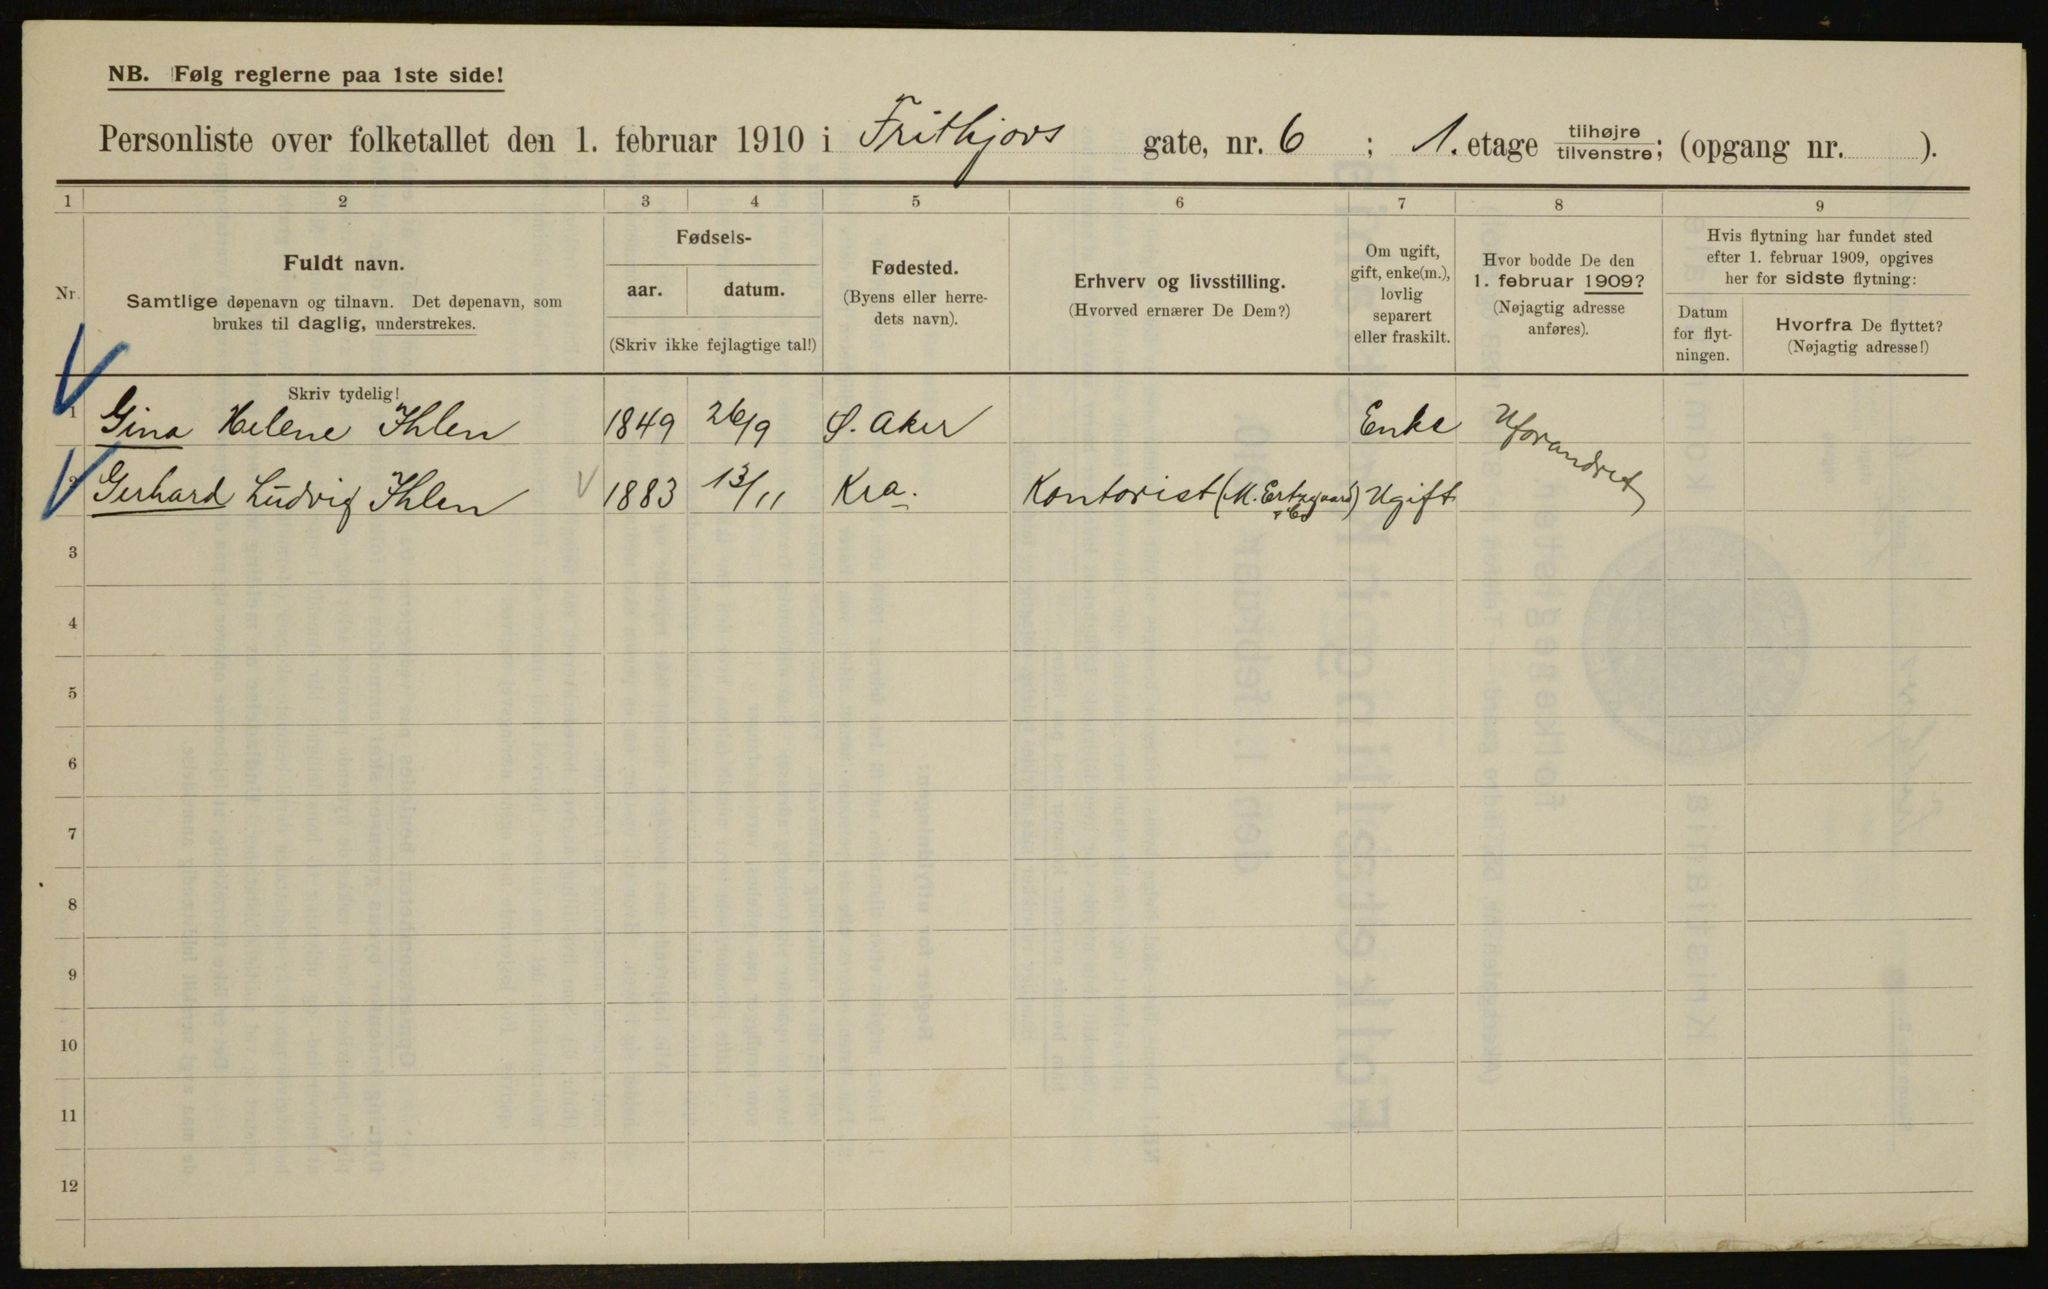 NB. Følg reglerne paa 1ste side!
Personliste over folketallet den 1. februar 1910 i Frithjovs gate, nr. 6 ; 1. etage tilhøjre tilvenstre; (opgang nr. ).
1 2 3 4 5 6 7 8 9
Nr.
Fuldt navn.
Samtlige døpenavn og tilnavn. Det døpenavn, som
brukes til daglig, understrekes.
Skriv tydelig!
Fødsels-
aar. datum.
(Skriv ikke fejlagtige tal!)
Fødested.
(Byens eller herre-
dets navn).
Erhverv og livsstilling.
(Hvorved ernærer De Dem?)
Om ugift,
gift, enke(m.),
lovlig
separert
eller fraskilt.
Hvor bodde De den
1. februar 1909?
(Nøjagtig adresse
anføres).
Hvis flytning har fundet sted
efter 1. februar 1909, opgives
her for sidste flytning:
Datum
for flyt-
ningen.
Hvorfra De flyttet?
(Nøjagtig adresse!)
1 Gina Helene Ihlen 1849 26/9 Ø. Aker Enke Uforandret
2 Gerhard Ludvig Ihlen 1883 13/11 Kra. Kontorist (M. Ertzgaard & Co) Ugift
3
4
5
6
7
8
9
10
11
12